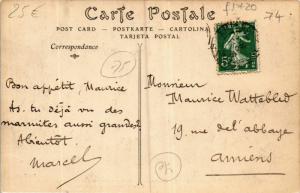 25€
Carte Postale
£1720
74
POST CARD - POSTKARTE - CARTOLINA
TARJETA POSTAL
Correspondance
75
5
Bon appétit, Maurice
As-tu déjà vu des
marmites aussi grandes?
A bientôt
Marcel
Monsieur
Maurice Wattebled
19, rue de l'abbaye
Amiens